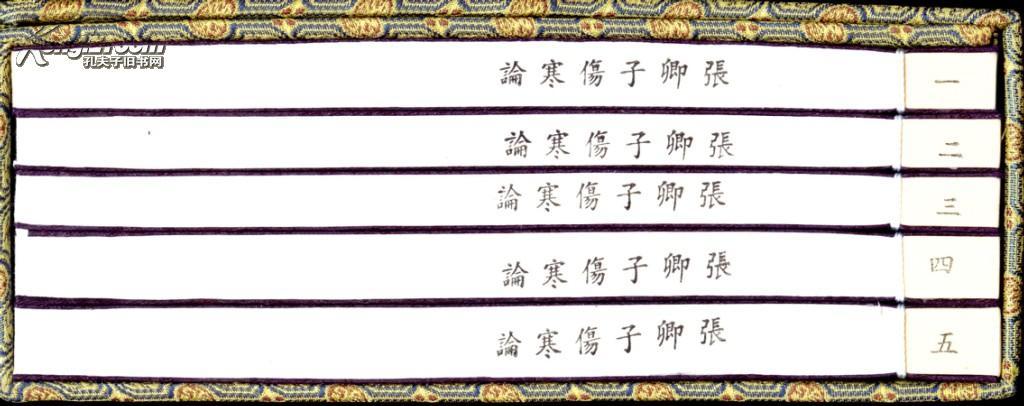 孔夫子旧书网
張卿子傷寒論 一
張卿子傷寒論 二
張卿子傷寒論 三
張卿子傷寒論 四
張卿子傷寒論 五